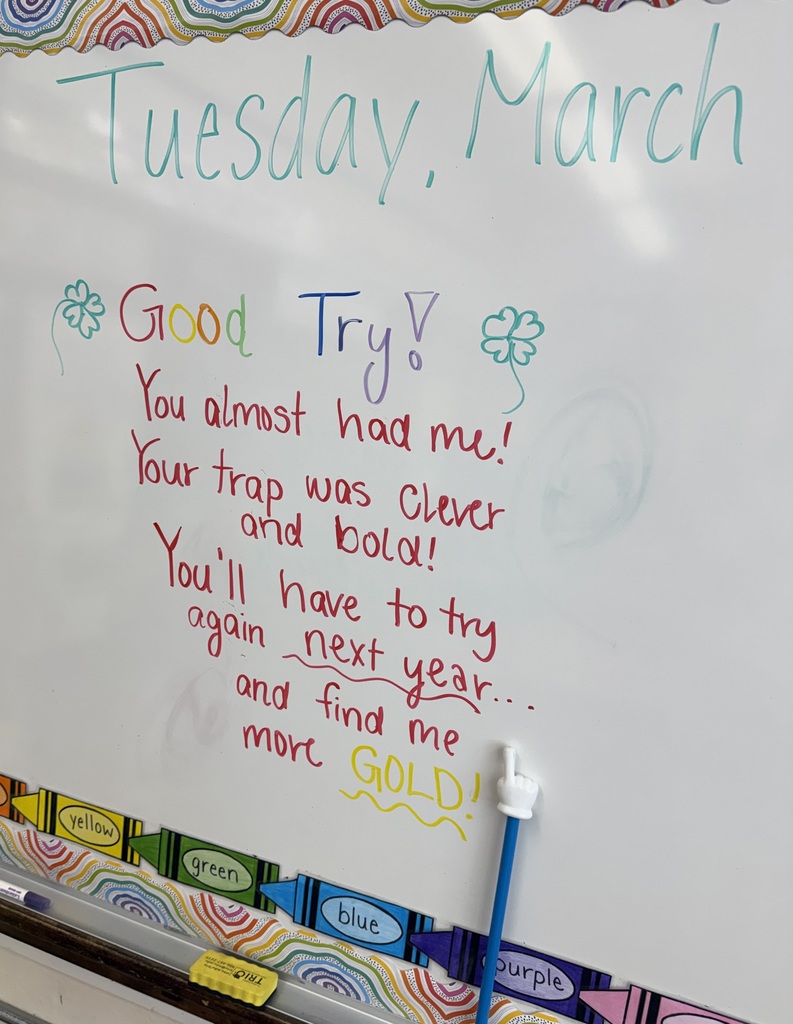 Tuesday, March
Good Try!
You almost had me!
Your trap was clever
and bold!
You'll have to try
again next year...
and find me
more GOLD!
yellow
green
blue
purple
TRIO